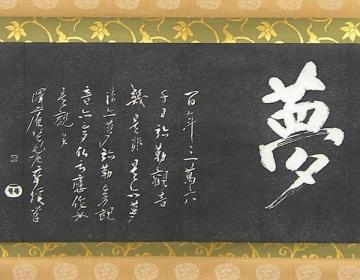 夢
百年三萬六
千日弥勒觀音
幾是非是亦夢
非亦夢弥勒夢觀
音亦夢仏云應作如
是觀矣